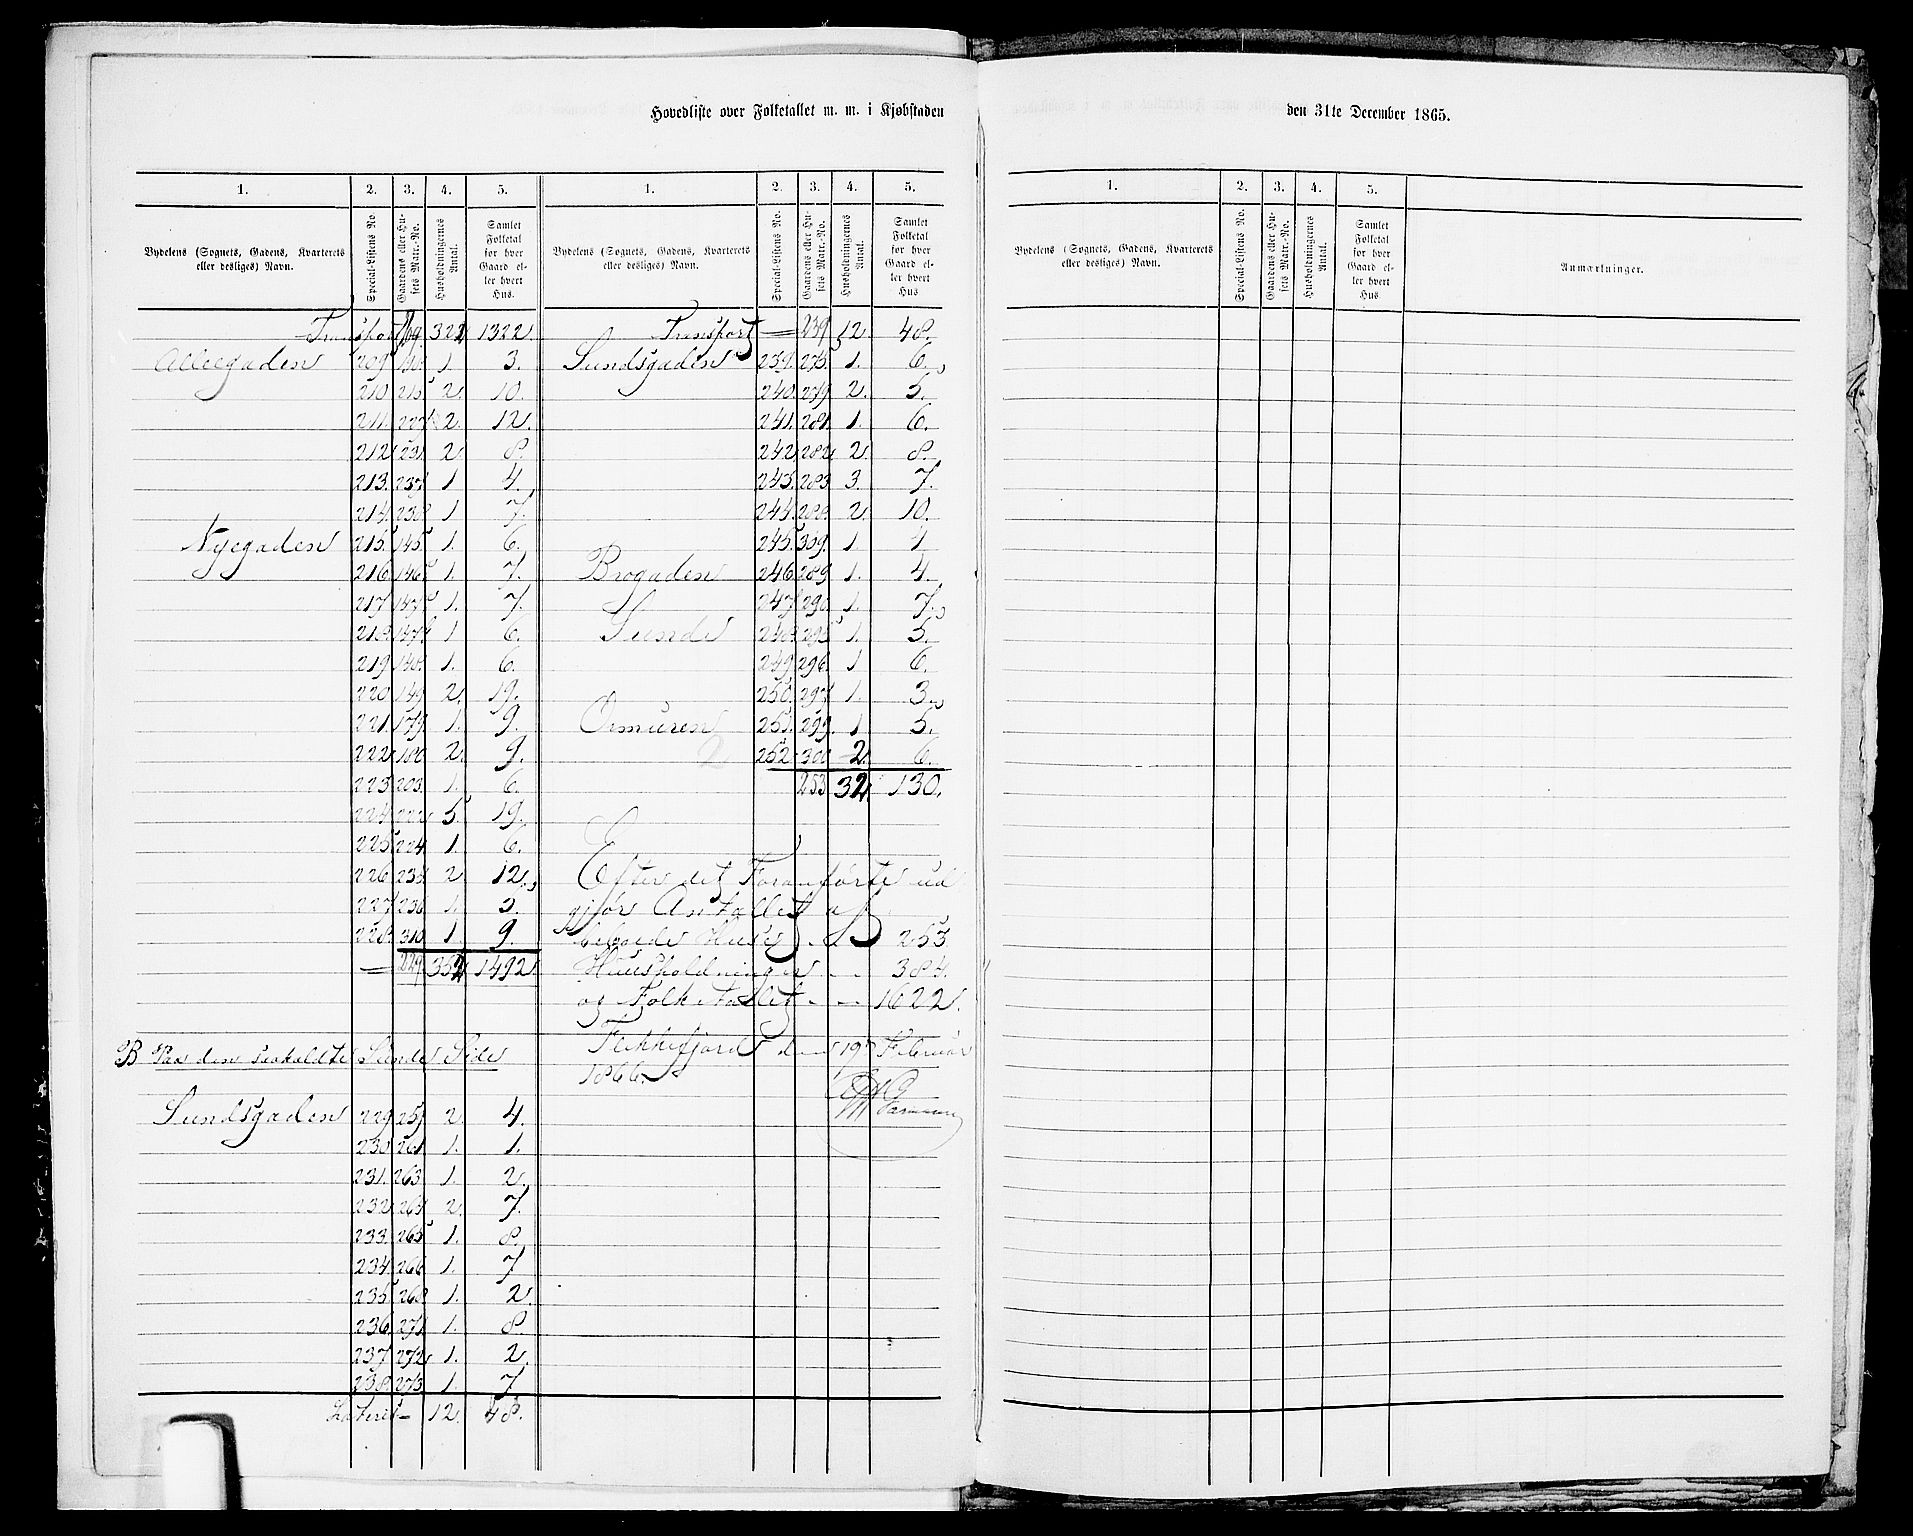 Hovedliste over Folketallet m. m. i Kjøbstaden
1. 2. 3. 4. 5.
Bydelens (Sognets, Gadens, Kvarterets eller desliges) Navn. Special-Listens No. Gaardens eller Husets Matr.-No. Husholdningernes Antal. Samlet Folketal for hver Gaard eller hvert Hus.
Transport 322 1322.
Alleegaden 209 1. 3.
210 215 2. 10.
211. 2. 12.
212 231 2. 8.
213. 237 1 4.
214. 238 1 7.
Nyegaden 215. 145 1. 6.
216. 146 1. 7.
217 147 1. 7.
218. 147 1 6.
219 148. 1. 6.
220 149 2. 19.
221 179 1. 9.
222 180 2. 9.
223 203. 1. 6.
224 222 5. 19.
225 224 1. 6.
226 235 2 12.
227 236 1. 5.
228. 310 1. 9.
229 352 1492
B Paa den saakaldte Sunde Side
Sundsgaden 229 259 2. 4.
230 261 1. 1.
231. 263 1. 2.
232 264 2. 7.
233. 265 1. 8.
234. 266 1. 7
235. 268 1. 2.
236. 271. 1. 8.
237 272 1. 2.
238. 273 1. 7
Lateris 12. 48.
1. 2. 3. 4. 5.
Bydelens (Sognets, Gadens, Kvarterets eller desliges) Navn. Special-Listens No. Gaardens eller Husets Matr.-No. Husholdningernes Antal. Samlet Folketal for hver Gaard eller hvert Hus
Transport — 239 12. 48.
Sundsgaden 239. 275. 1. 6.
240. 279 2. 5.
241. 281. 1. 6.
242 282 2. 8.
243. 283 3. 7.
244. 288. 2. 10.
245. 309. 1. 1
Brogaden 246. 289 1. 4.
247 290. 1. 7.
Sunde 248. 295 1. 5.
249. 296. 1 6.
250. 297 1. 3.
Osmuren 251. 299. 1 5.
252. 300 2. 6.
253 32. 130.
Efter det Foranførte ud
gjør Antallet af
beboede Huse 253
Huusholdninger 384.
og Folketallet 1622.
Flekkefjord den 19 Februar
1866.
den 31te December 1865.
1. 2. 3. 4. 5.
Bydelens (Sognets, Gadens, Kvarterets eller desliges) Navn. Special-Listens No. Gaardens eller Husets Matr.-No. Husholdningernes Antal. Samlet Folketal for hver Gaard eller hvert Hus Anmærkninger.